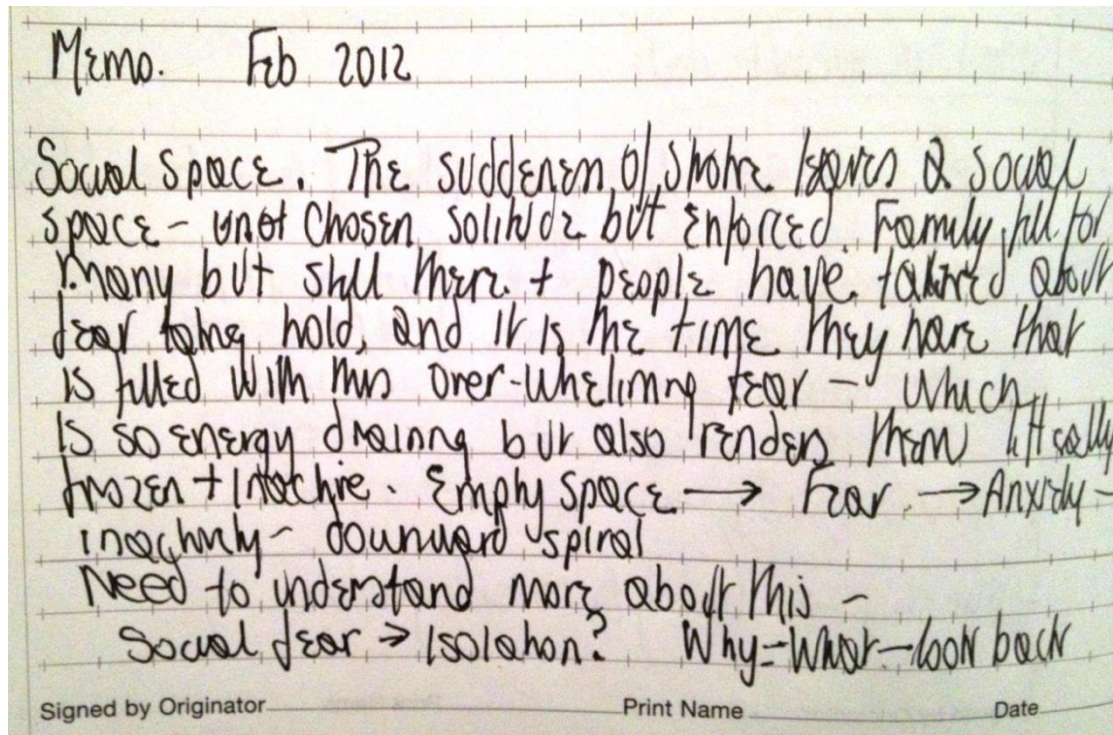 Memo. Feb 2012
Social space. The suddenen of stroke leaves a social
space - not chosen solitude but enforced. Family for
many but still there + people have talked about
fear taking hold, and it is the time they have that
is filled with this over-whelming fear - which
is so energy draining but also renders them
frozen + inactive. Empty space → Fear → Anxiety -
inactivity - downward spiral
Need to understand more about this -
Social fear → Isolation? Why - What - look back
Signed by Originator Print Name Date